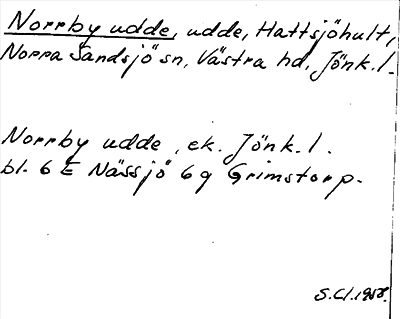 Norrby udde, udde, Hattsjöhult,
Norra Sandsjö sn, Västra hd, Jönk. l.
Norrby udde, ek. Jönk. l.
bl. 6 E Nässjö 6 g Grimstorp.
S. Cl. 1958.